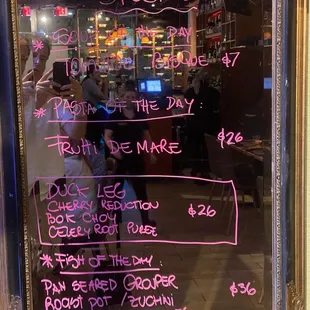 * SOUP OF THE DAY
TOMATO BISQUE $7
* PASTA OF THE DAY:
FRUTTI DE MARE $26
DUCK LEG
CHERRY REDUCTION
BOK CHOY $26
CELERY ROOT PUREE
* FISH OF THE DAY:
PAN SEARED GROUPER
ROAST POT / ZUCHINI $36